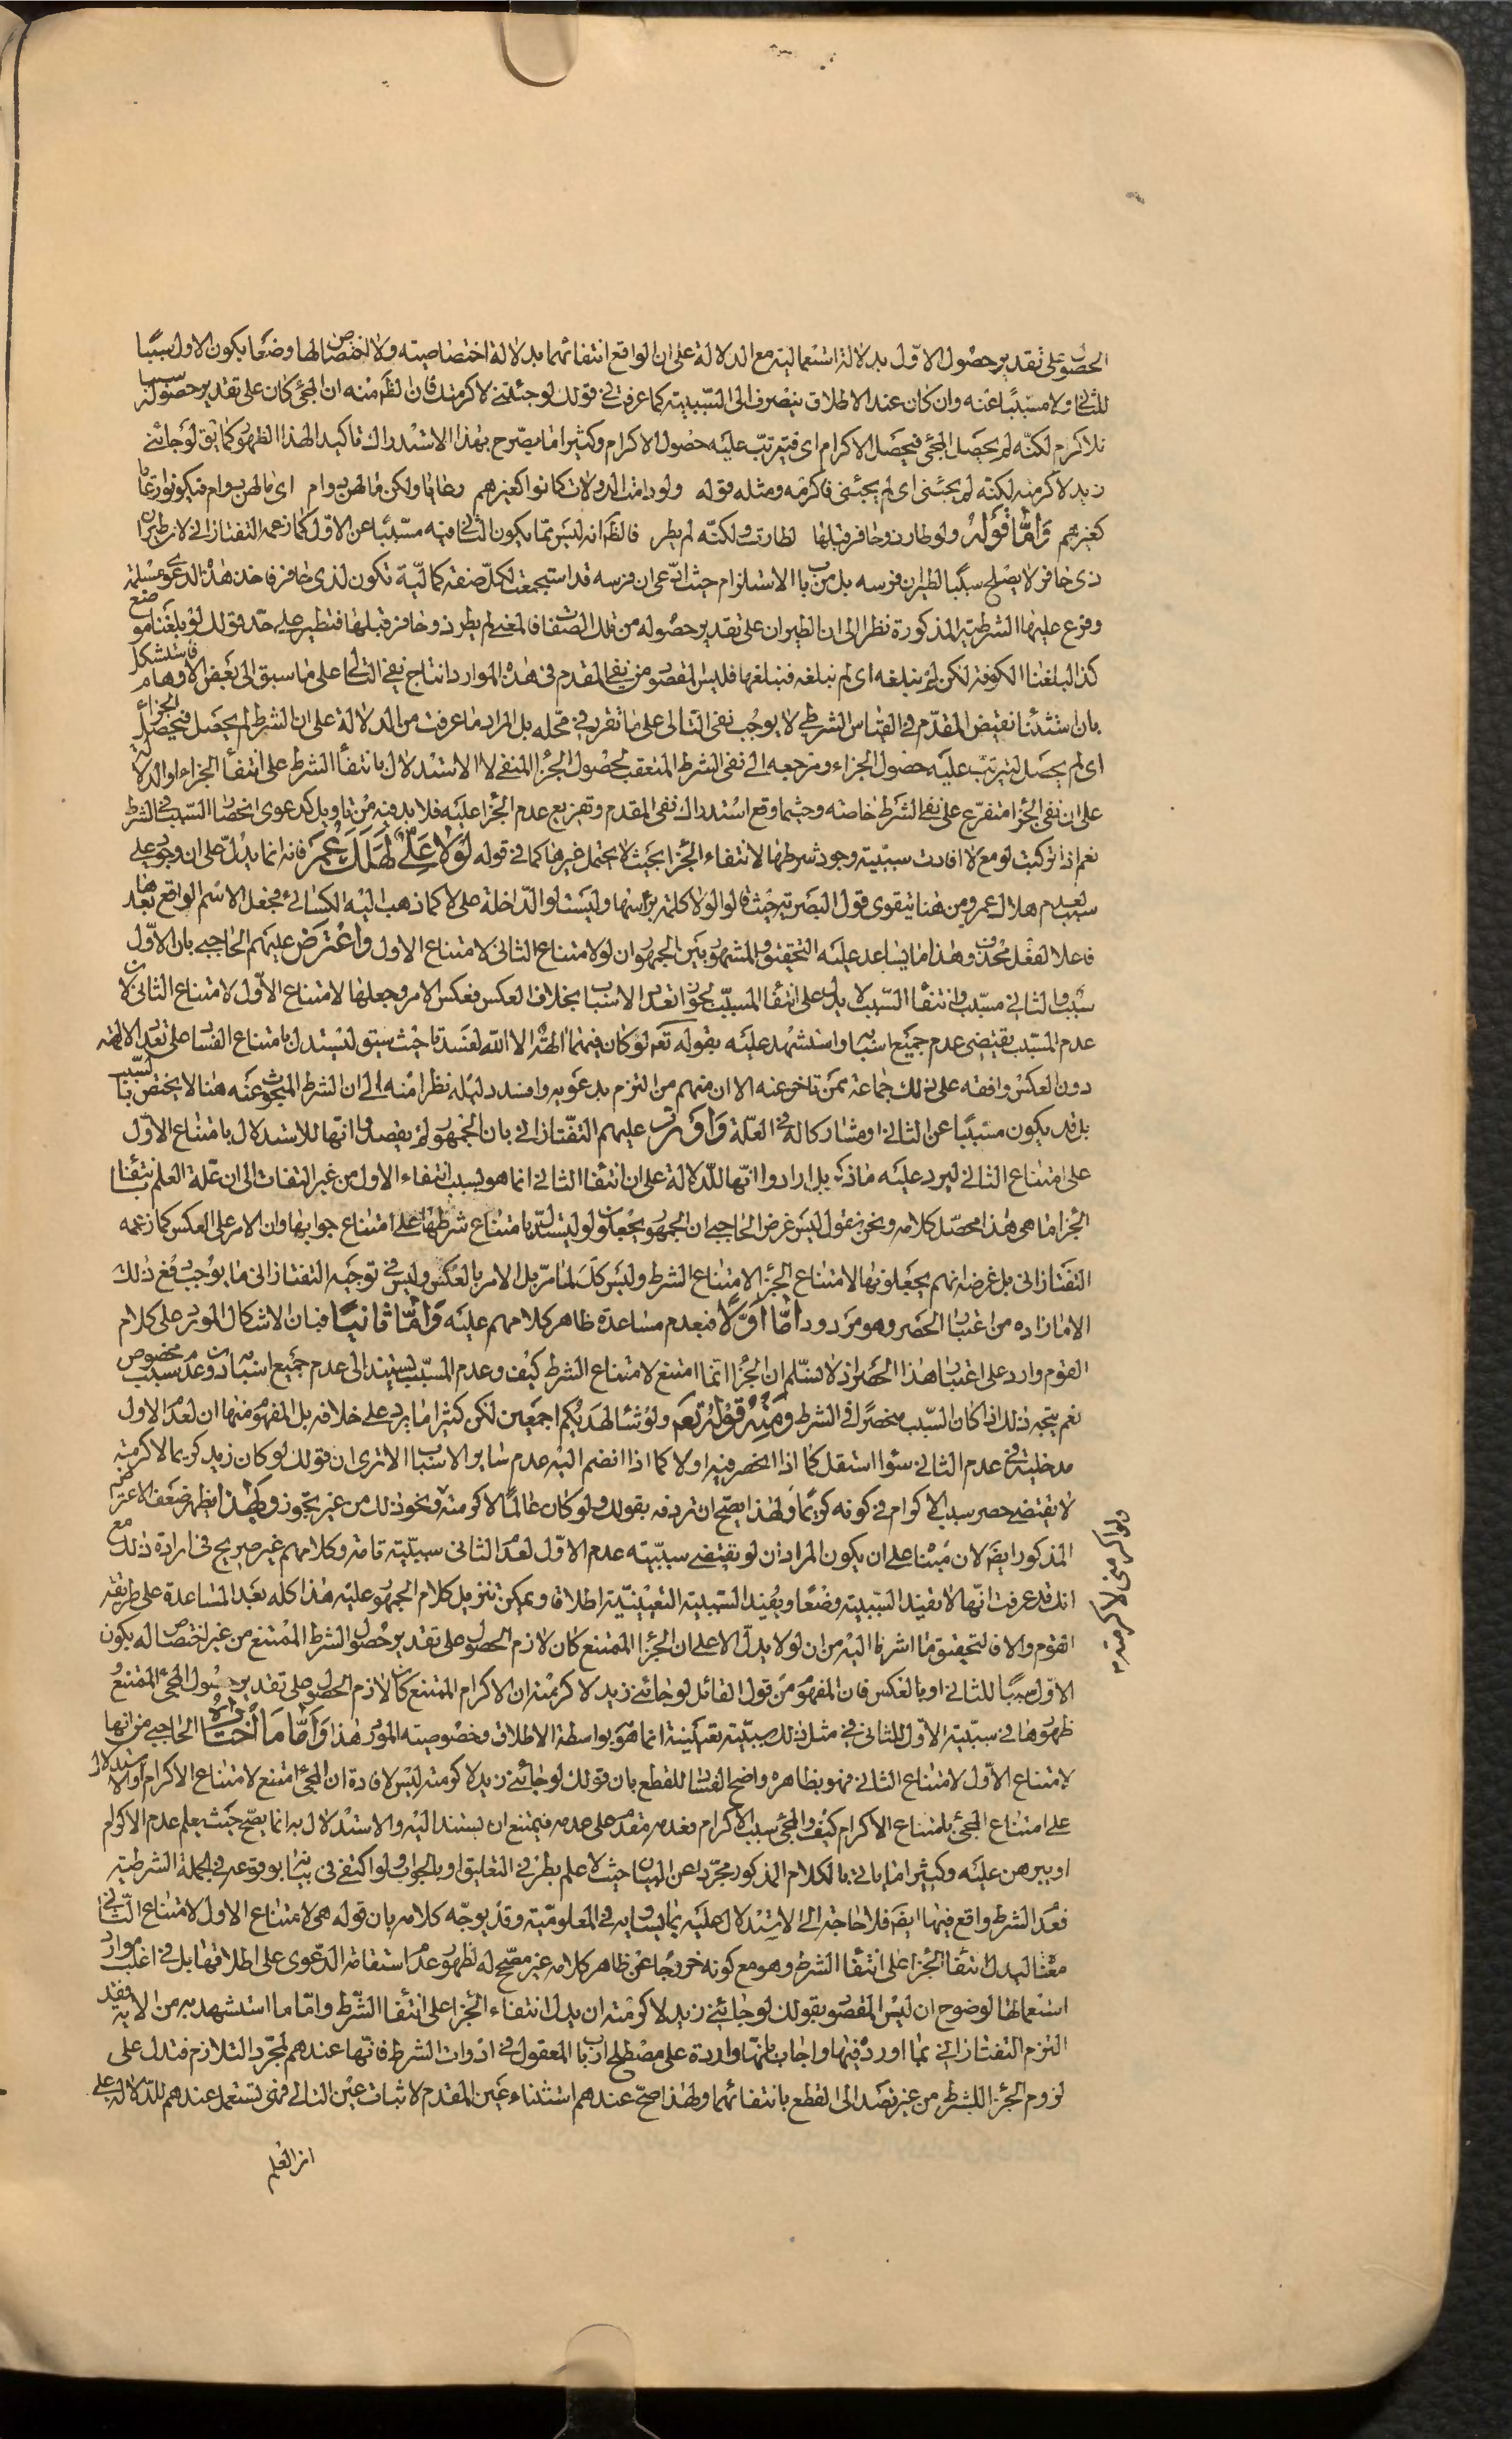 الحصول على تقدير حصول الاوّل بدلالة استعمالية مع الدلالة على ان الواقع انتفائهما بدلالة اختصاصيته ولا اختصاص لها وضعا بكون الاول سببًا
للثاني ولا مسبّبًا عنه وان كان عند الاطلاق ينصرف الى السّببية كما عرفت في قولك لو جئتني لاكرمتك فان الظ منه ان المجئ كان على تقدير حصوله سببا
للاكرام لكنّه لم يحصل المجئ فيحصل الاكرام اى فيترتب عليه حصول الاكرام وكثيرا ما يصرح بهذا الاستدراك تاكيدا لهذا الظهور كما يق لو جائنى
زيد لاكرمته لكنّه لم يجئنى اى لم يجئنى فاكرمه ومثله قوله ولو دامت الدولات كانوا كغيرهم رعايا ولكن ما لهن دوام اى ما لهن دوام فيكونوا رعايا
كغيرهم وَامّا قوله ولو طار ذو حافر قبلها لطارت ولكنّه لم يطر فالظ انه ليس ممّا يكون الثانى فيه مسبّبا عن الاوّل كما زعمه التفتازانى لان طيران
ذى حافر لا يصلح سببًا لطيران فرسه بل من باب الاستلزام حيث ادّعى ان فرسه قد استجمعت لكلّ صفة كمالية تكون لذى حافر فاخذ هذه الدعوى مسلمة
وفرع عليها الشرطية المذكورة نظرا الى ان الطيران على تقدير حصوله من تلك الصفات فالمعنى لم يطر ذو حافر قبلها فتطير على حدّ قولك لو بلغنا موضع
كذا لبلغنا الكوفة لكن لم نبلغه اى لم نبلغه فنبلغها فليس المقصود من نفى المقدم فى هذه الموارد انتاج نفى التالى على ما سبق الى بعض الاوهام فاستشكل
بان استثناء نقيض المقدّم فى القياس الشرطى لا يوجب نفى التالى على ما تقرر فى محله بل المراد ما عرفت من الدلالة على ان الشرط لم يحصل فيحصل الجزاء
اى لم يحصل ليترتب عليه حصول الجزاء ومرجعه الى نفى الشرط المتعقب لحصول الجزاء المنفى لا الاستدلال بانتفاء الشرط على انتفاء الجزاء او الدلالة
على ان نفى الجزاء متفرع على نفى الشرط خاصة وحيثما وقع استدراك نفى المقدم وتفريع عدم الجزاء عليه فلا بد فيه من تاويل كدعوى انحصار السّبب فى الشرط
نعم اذا تركبت لو مع لا افادت سببيّة وجود شرطها لانتفاء الجزاء بحيث لا يحتمل غيرها كما فى قوله لَوْلا عَلىٌّ لَهَلَكَ عُمَر فانه انما يدل على ان وجود على
سبب لعدم هلاك عمر ومن هنا يتقوى قول البصرية حيث قالوا لولا كلمة براسها وليست لو الدّاخلة على لا كما ذهب اليه الكسائى فجعل الاسم الواقع بعدها
فاعلا لفعل محذوف وهذا ما يساعد عليه التحقيق والمشهور بين الجمهور ان لو لامتناع الثانى لامتناع الاول وَاعْترض عليهم الحاجبى بان الاوّل
سبب والثانى مسبّب وانتفاء السّبب لا يدل على انتفاء المسبّب لجواز تعدد الاسباب بخلاف العكس فعكس الامر وجعلها لامتناع الاوّل لامتناع الثانى لان
عدم المسبّب يقتضى عدم جميع اسبابه واستشهد عليه بقوله تعم لو كان فيهما الهة الا الله لفسدتا حيث سيق ليستدل بامتناع الفساد على تعدد الالهة
دون العكس وافقه على ذلك جماعة ممّن تاخر عنه الا ان منهم من التزم بدعويه وافسد دليله نظرا منه الى ان الشرط المبحوث عنه هنا لا يختص بالسّبب
بل قد يكون مسبّبًا عن الثانى او مشاركا له فى العلّة وَاورد عليهم التفتازانى بان الجمهور لم يقصدوا انها للاستدلال بامتناع الاوّل
على امتناع الثانى ليرد عليه ما ذكر بل ارادوا انّها للدلالة على ان انتفاء الثانى انما هو بسبب انتفاء الاول من غير التفات الى ان علة العلم بانتفاء
الجزاء ما هى هذا محصّل كلامه ونحن نقول ليس غرض الحاجبى ان الجمهور يجعلون لو ليستدل بامتناع شرطها على امتناع جوابها وان الامر على العكس كما زعمه
التفتازانى بل غرضه انهم يجعلونها لامتناع الجزاء لامتناع الشرط وليس كك لما مرّ بل الامر بالعكس وليس فى توجيه التفتازانى ما يوجب دفع ذلك
الا ما زاده من اعتبار الحصر وهو مردود امّا اوّلا فبعدم مساعدة ظاهر كلامهم عليه وَامّا ثانيًا فبان الاشكال المورد على كلام
القوم وارد على اعتبار هذا الحصر اذ لا نسلّم ان الجزاء انما امتنع لامتناع الشرط كيف وعدم المسبّب يستند الى عدم جميع اسبابه لا وعدم سبب مخصوص
نعم يتجه ذلك اذا كان السّبب منحصرًا فى الشرط ومنه قوله تعم ولو شاء لهديكم اجمعين لكن كثيرا ما يرد على خلافه بل المفهوم منها ان لعدم الاول
مدخلية فى عدم الثانى سواء استقل كما اذا انحصر فيه او لا كما اذا انضم اليه عدم ساير الاسباب الا ترى ان قولك لو كان زيد كريما لاكرمته
لا يقتضى حصر سبب الاكرام فى كونه كريمًا ولهذا يصحّ ان تردفه بقولك ولو كان عالمًا لاكرمته ونحو ذلك من غير تجوز وَبهذا يظهر ضعف الاعتراض
المذكور ايضَ لان مبناه على ان يكون المراد ان لو تقتضى سببيّة عدم الاوّل لعدم الثانى سببيّة تامّة وكلامهم غير صريح فى ارادة ذلك مع
انك قد عرفت انّها لا تفيد السّببية وضعًا وتفيد السّببية التعيينيّة اطلاقا ويمكن تنزيل كلام الجمهور عليه هذا كله بعد المساعدة على طريقة
القوم والا فالتحقيق ما اشرنا اليه من ان لو لا يدلّ الا على ان الجزاء الممتنع كان لازم الحصول على تقدير حصول الشرط الممتنع من غير اختصاص له بكون
الاوّل سببًا للثانى او بالعكس فان المفهوم من قول القائل لو جائنى زيد لاكرمته ان الاكرام الممتنع كان لازم الحصول على تقدير حصول المجئ الممتنع
ظهورها فى سببيّة الاوّل للثانى فى مثل ذلك سببيّة تعيينية انما هو بواسطة الاطلاق وخصوصية المورد هذا وَامّا مَا اختاره الحاجبى من انها
لامتناع الاوّل لامتناع الثانى فهو بظاهره واضح الفساد للقطع بان قولك لو جائنى زيد لاكرمته ليس لافادة ان المجئ امتنع لامتناع الاكرام او الاستدلال
على امتناع المجئ بامتناع الاكرام كيف والمجئ سبب الاكرام فعدمه مقدم على عدمه فيمتنع ان يستند اليه والاستدلال به انما يصّح حيث يعلم عدم الاكرام
او يبرهن عليه وكثيرا ما يأتى بالكلام المذكور مجرّدا عن البيان حيث لا علم بطرفى التعليق او بالجواب ولو اكتفى فى بيانه بوقوعه فى الجملة الشرطية
فعدم الشرط واقع فيها ايضَ فلا حاجة الى الاستدلال عليه بما يساويه فى المعلوميّة وقد يوجّه كلامه بان قوله هى لامتناع الاول لامتناع الثّانى
معناه ليدل انتفاء الجزاء على انتفاء الشرط وهو مع كونه خروجًا عن ظاهر كلامه غير مصحّح له لظهور عدم استقامة الدّعوى على اطلاقها بل فى اغلب موارد
استعمالها لوضوح ان ليس المقصود بقولك لو جائنى زيد لاكرمته ان يدل انتفاء الجزاء على انتفاء الشّرط وامّا ما استشهد به من الاية فقد
التزم التفتازانى بما اورد فيها واجاب بانّها واردة على مصطلح ارباب المعقول فى ادوات الشرط فانّها عندهم لمجرّد التلازم فتدل على
لزوم الجزاء للشرط من غير قصد الى القطع بانتفائهما ولهذا صحّ عندهم استثناء عين المقدم لاثبات عين التالى فهى تستعمل عندهم للدّلالة على
ان العلم
ولو اكرمنى لاكرمته م